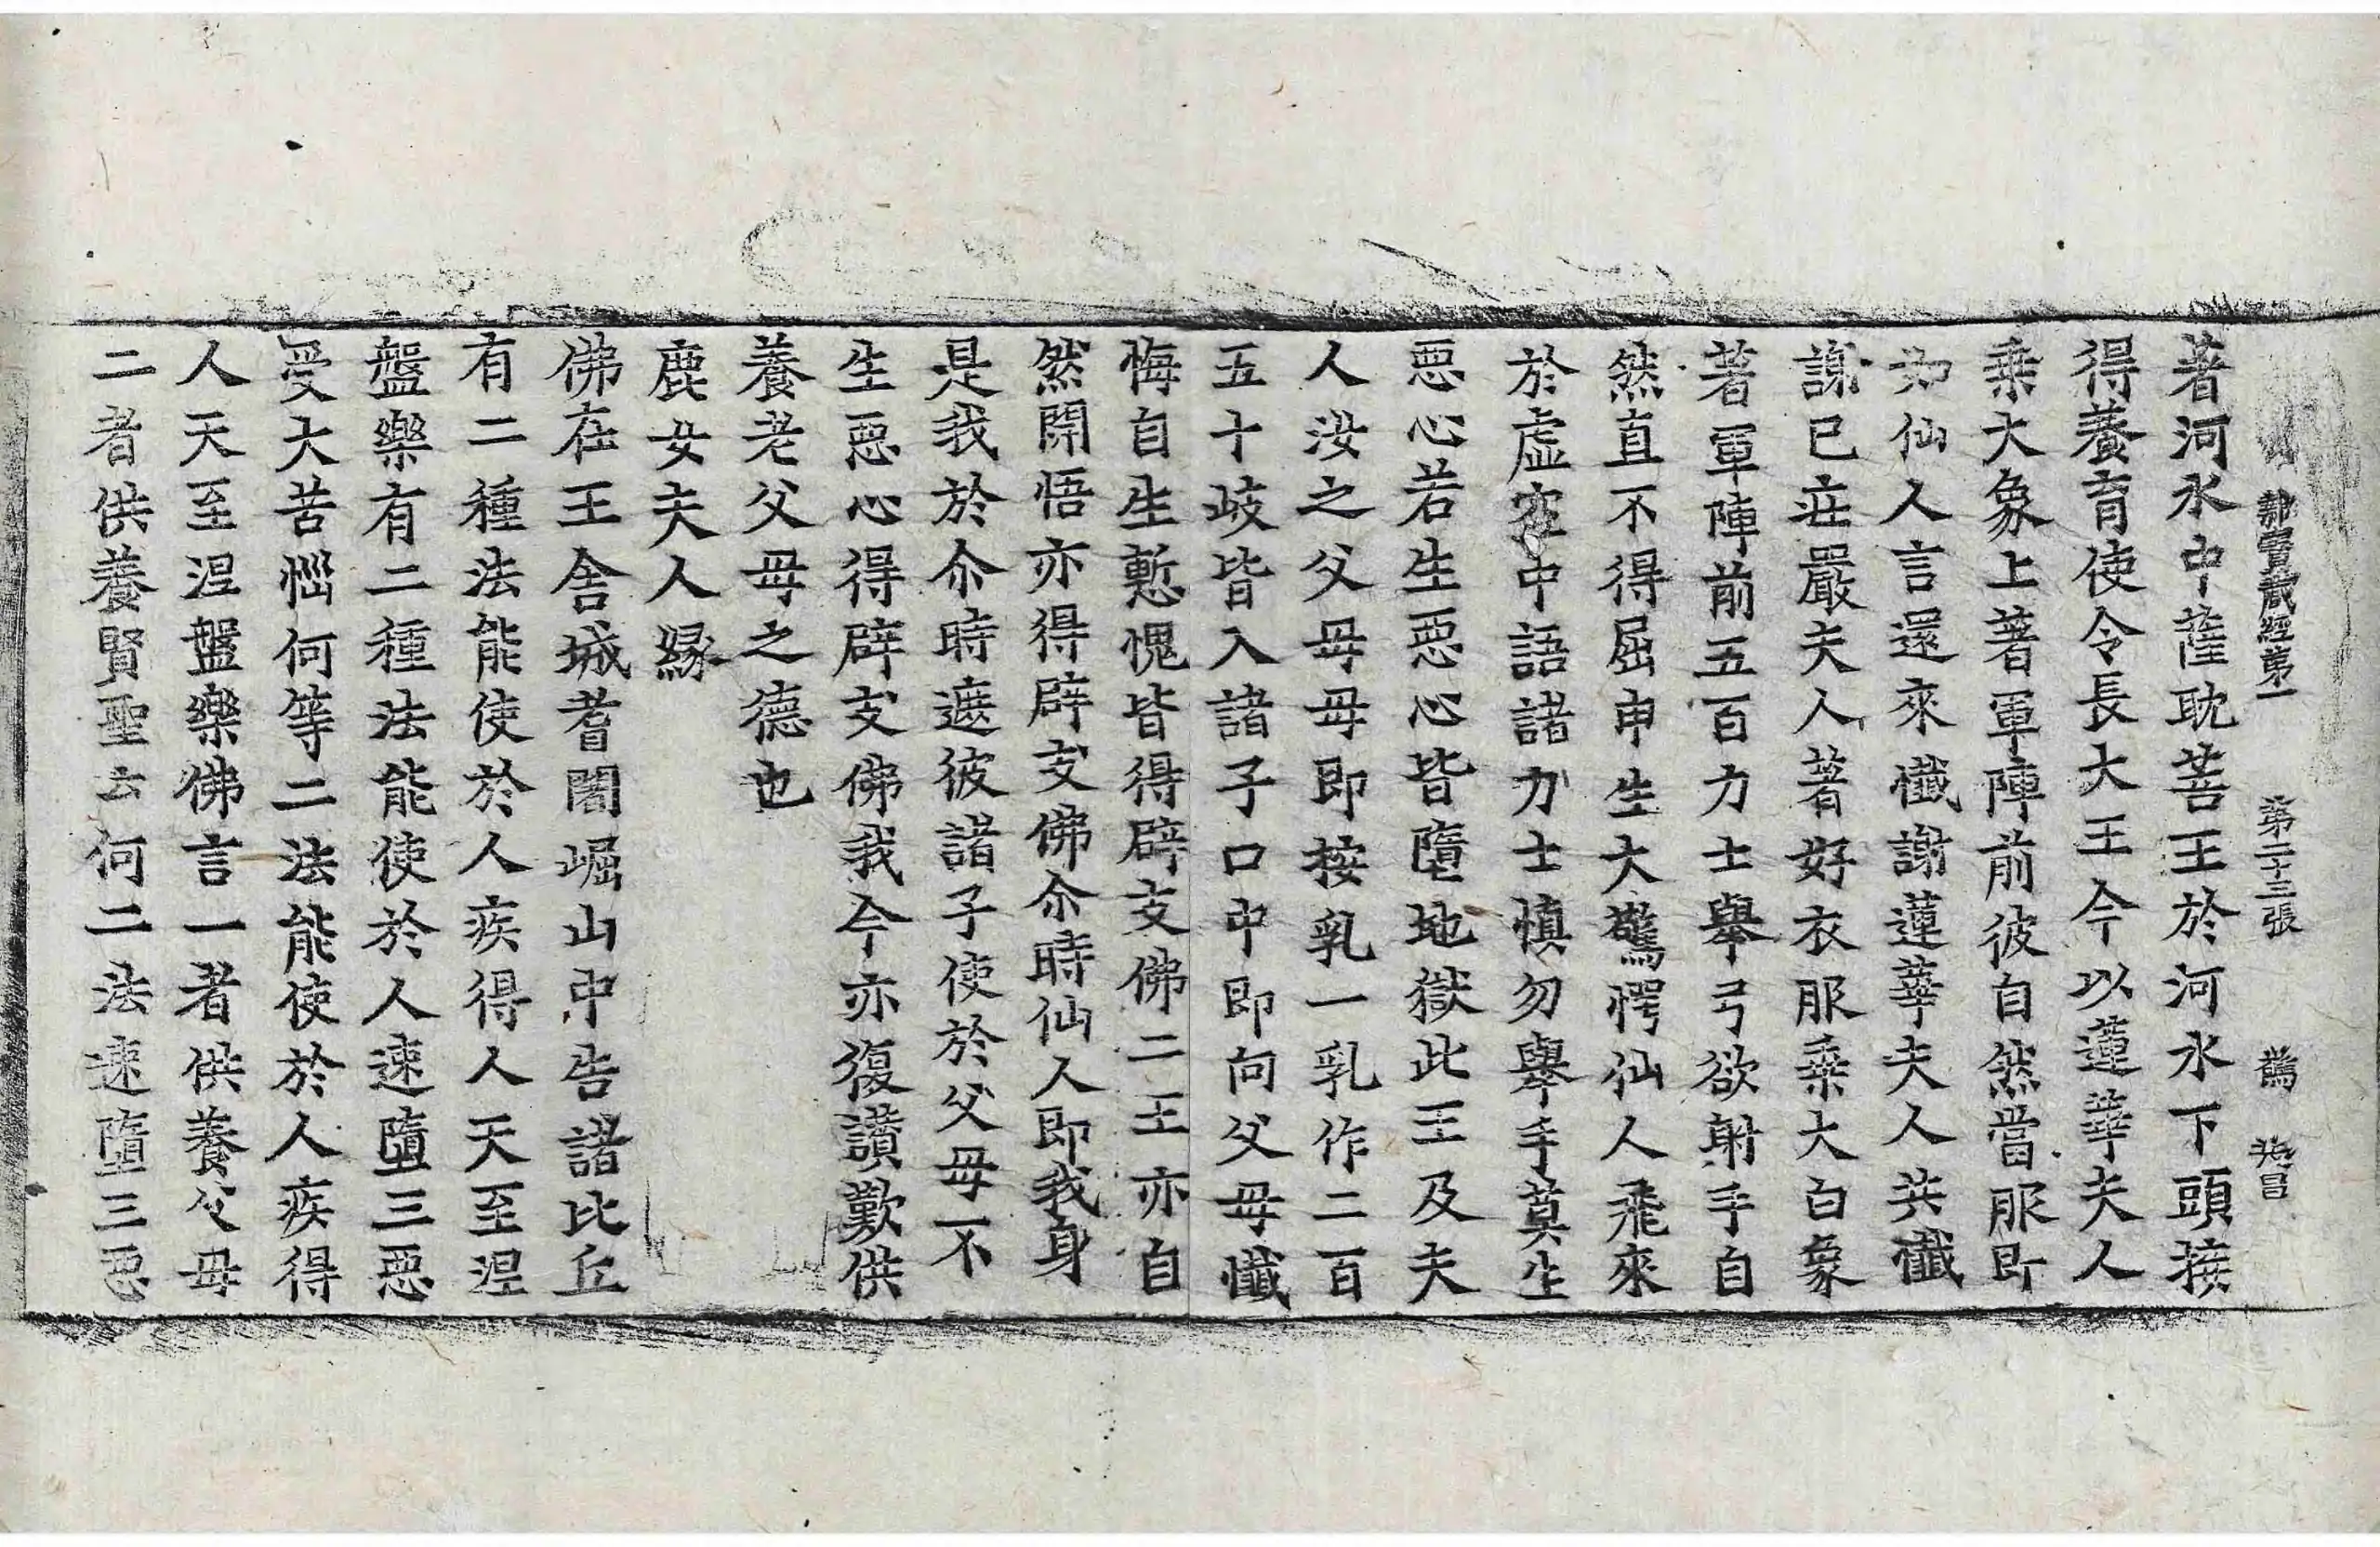 雜寶藏經第一　第二十三張　驚　昌
著河水中薩耽菩王於河水下頭接
得養育使令長大王今以蓮華夫人
乗大象上著軍陣前彼自然當服即
如仙人言還來懺謝蓮華夫人共懺
謝已莊嚴夫人著好衣服乗大白象
著軍陣前五百力士舉弓欲射手自
然直不得屈申生大驚愕仙人飛來
於虛空中語諸力士慎勿舉手莫生
惡心若生惡心皆墮地獄此王及夫
人汝之父母母即按乳一乳作二百
五十岐皆入諸子口中即向父母懺
悔自生慙愧皆得辟支佛二王亦自
然開悟亦得辟支佛尒時仙人即我身
是我於尒時遮彼諸子使於父母不
生惡心得辟支佛我今亦復讃歎供
養老父母之德也
鹿女夫人緣
佛在王舍城耆闍崛山中告諸比丘
有二種法能使於人疾得人天至涅
盤樂有二種法能使於人速墮三惡
受大苦惱何等二法能使於人疾得
人天至涅盤樂佛言一者供養父母
二者供養賢聖云何二法速墮三惡